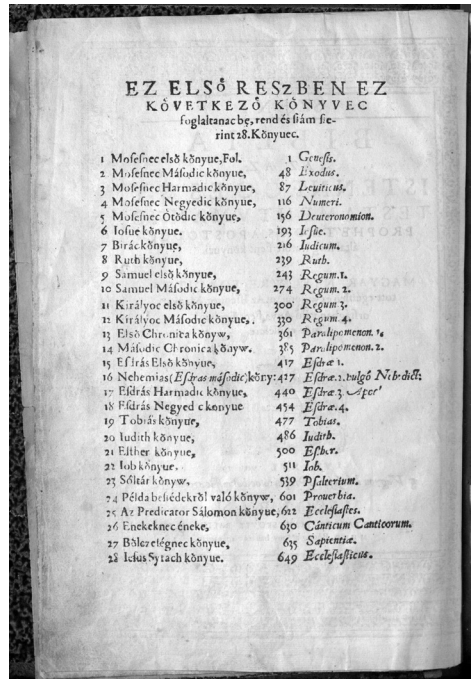 EZ ELSő RESzBEN EZ
KÖVETKEZő KÖNYVEC
foglaltanac be, rend és ſzám ſze-
rint 28. Kőnyuec.
1 Moſeſnec elsö kőnyue, Fol. 1 Geneſis.
2 Moſeſnec Máſodic kőnyue, 48 Exodus.
3 Moſeſnec Harmadic kőnyue, 87 Leuiticus.
4 Moſeſnec Negyedic kőnyue, 116 Numeri.
5 Moſeſnec Ötödic kőnyue, 156 Deuteronomion.
6 Ioſue kőnyue. 193 Ieſûe.
7 Birác kőnyue, 216 Iudicum.
8 Ruth kőnyue, 239 Ruth.
9 Samuel elsö kőnyue, 243 Regum.1.
10 Samuel Máſodic kőnyue, 274 Regum.2.
11 Királyoc elsö kőnyue, 300 Regum 3.
12 Királyoc Máſodic kőnyue,. 330 Regum 4.
13 Elsö Chronica kőnyw, 361 Paralipomenon. 1.
14 Máſodic Chronica kőnyw. 385 Paralipomenon. 2.
15 Eſdrás Elsö kőnyue, 417 Eſdræ 1.
16 Nehemias (Eſdras máſodic) kőny: 427 Eſdræ.2. vulgó
17 Eſdrás Harmadic kőnyue, 440 Eſdræ 3.
18 Eſdrás Negyed c kőnyue 454 Eſdræ.4.
19 Tobiás kőnyue, 477 Tobias.
20 Iudith kőnyue, 486 Iudith.
21 Eſther kőnyue, 500 Eſther.
22 Iob kőnyue. 511 Iob.
23 Sóltár kőnyw. 539 Pſalterium.
24 Példa beſiédekről való kőnyw, 601 Prouerbia.
25 Az Predicator Sálomon kőnyue, 622 Eccleſiaſtes.
26 Enekeknec éneke, 630 Cánticum Canticorum.
27 Bőlczeſégnec kőnyue, 635 Sapientiæ.
28 Ieſus Syrach kőnyue. 649 Eccleſiaſticus.